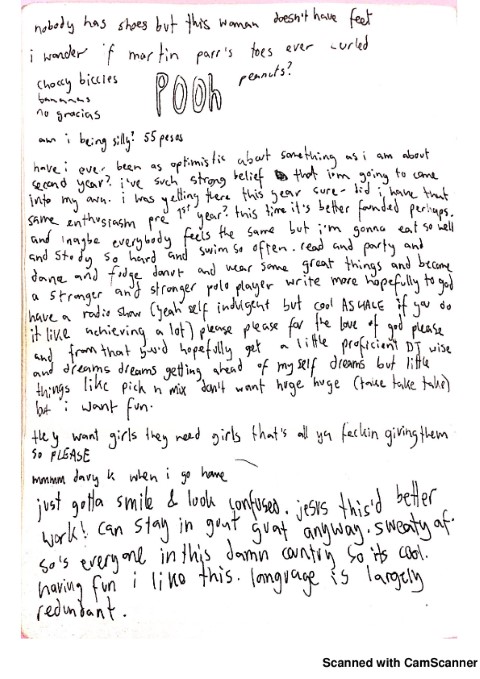 nobody has shoes but this woman doesn't have feet
i wonder if martin parr's toes ever curled
choccy biccies
bananas
no gracias
POOh
peanuts?
am i being silly? 55 pesos
have i ever been as optimistic about something as i am about
second year? i've such strong belief that i'm going to come
into my own. i was yelling there this year sure - did i have that
same enthusiasm pre 1st year? this time it's better founded perhaps.
and maybe everybody feels the same but i'm gonna eat so well
and study so hard and swim so often. read and party and
dance and fudge donut and wear some great things and become
a stronger and stronger polo player write more hopefully to god
have a radio show (yeah self indulgent but cool AS HALE if you do
it like achieving a lot) please please for the love of god please
and from that you'd hopefully get a little proficient DJ wise
and dreams dreams getting ahead of myself dreams but little
things like pick n mix don't want huge huge (take take take)
but i want fun.
they want girls they need girls that's all ya feckin giving them
so PLEASE
mmmm davy k when i go home
just gotta smile & look confused. jesus this'd better
work! can stay in gout guat anyway. sweaty af.
so's everyone in this damn country so its cool.
having fun i like this. language is largely
redundant.
Scanned with CamScanner